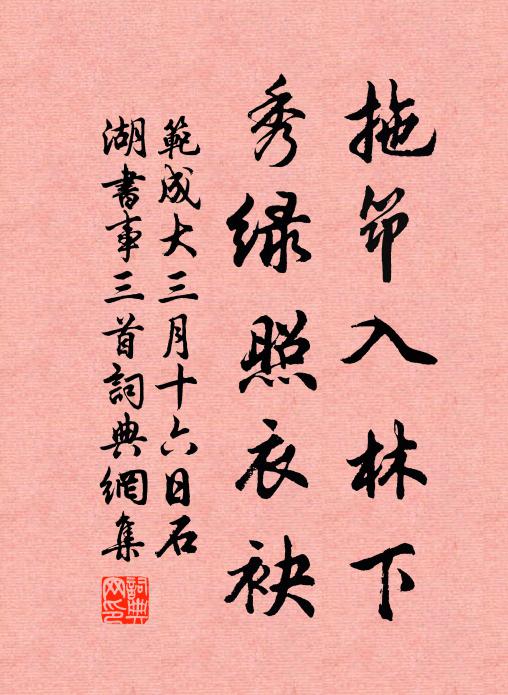 拖筇入林下
秀緑照衣袂
範成大三月十六日石
湖書事三首詞典網集
詞典
网印